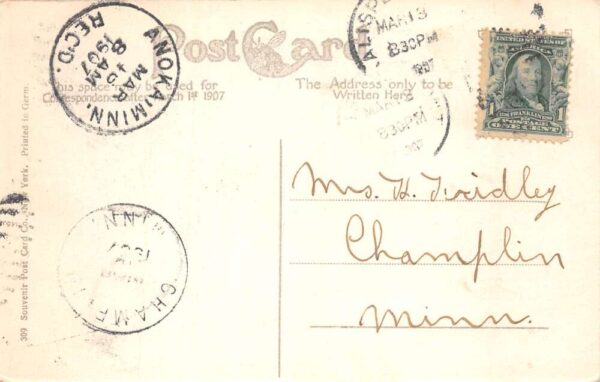 Post Card
This space may be used for
Correspondence after March 1st 1907
The Address only to be
Written Here
ANOKA, MINN.
MAR
15
8 AM
1907
REC'D.
MAR 13
8 30 PM
1907
MAR 13
8 30 PM
1907
UNITED STATES OF
AMERICA
FRANKLIN
1 POSTAGE 1
ONE CENT
Mrs. H.
Champlin
Minn.
CHAMPLIN
MINN
1907
309 Souvenir Post Card Co., New York. Printed in Germ.